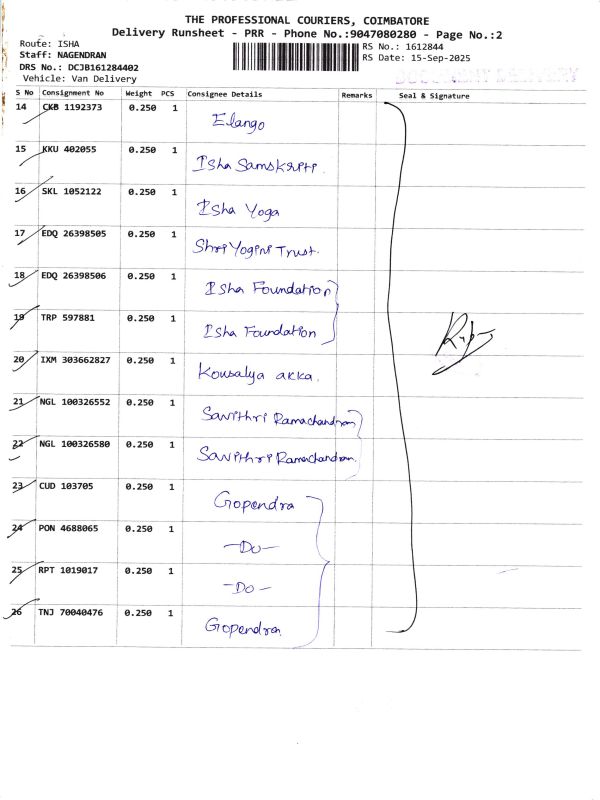 THE PROFESSIONAL COURIERS, COIMBATORE
Delivery Runsheet - PRR - Phone No.:9047080280 - Page No.:2
Route: ISHA
Staff: NAGENDRAN
DRS No.: DCJB161284402
Vehicle: Van Delivery
RS No.: 1612844
RS Date: 15-Sep-2025
S No Consignment No Weight PCS Consignee Details Remarks Seal & Signature
14 CKB 1192373 0.250 1 Elango
15 KKU 402055 0.250 1 Isha Samskriti.
16 SKL 1052122 0.250 1 Isha Yoga
17 EDQ 26398505 0.250 1 Shri Yogini Trust.
18 EDQ 26398506 0.250 1 Isha Foundation
19 TRP 597881 0.250 1 Isha Foundation
20 IXM 303662827 0.250 1 Kousalya akka.
21 NGL 100326552 0.250 1 Savithri Ramachandran
22 NGL 100326580 0.250 1 Savithri Ramachandran.
23 CUD 103705 0.250 1 Gopendra
24 PON 4688065 0.250 1 -Do-
25 RPT 1019017 0.250 1 -Do-
26 TNJ 70040476 0.250 1 Gopendra.